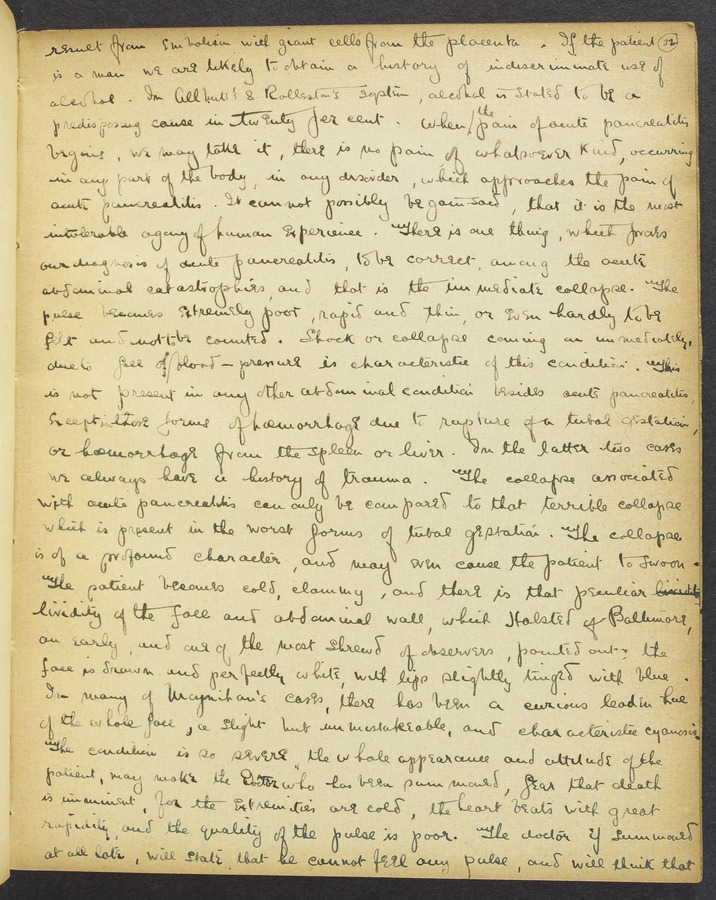 result from Embolism with giant cells from the placenta . If the patient 52
is a man we are likely to obtain a history of indiscriminate use of
alcohol . In Allbutt's & Rolleston's System , alcohol is stated to be a
predisposing cause in twenty per cent . When / the pain of acute pancreatitis
begins , we may take it , there is no pain of whatsoever Kind , occurring
in any part of the body , in any disorder , which approaches the pain of
acute pancreatitis . It cannot possibly be gainsaid , that it is the most
intolerable agony of human Experience . There is one thing , which proves
our diagnosis of acute pancreatitis , to be correct , among the acute
abdominal catastrophies , and that is the immediate collapse . The
pulse becomes Extremely poor , rapid and thin , or Even hardly to be
felt and not to be counted . Shock or collapse coming on immediately ,
due to fall of blood - pressure is characteristic of this condition . This
is not present in any other abdominal condition besides acute pancreatitis ,
Except in those forms of haemorrhage due to rupture of a tubal gestation ,
or haemorrhage from the spleen or liver . In the latter two cases
we always have a history of trauma . The collapse associated
with acute pancreatitis can only be compared to that terrible collapse
which is present in the worst forms of tubal gestation . The collapse
is of a profound character , and may even cause the patient to swoon .
The patient becomes cold , clammy , and there is that peculiar lividity
lividity of the face and abdominal wall , which Halsted of Baltimore ,
an early , and one of the most shrewd of observers , pointed out : the
face is drawn and perfectly white , with lips slightly tinged with blue .
In many of Moynihan's cases , there has been a curious leaden hue
of the whole face , a slight but unmistakeable , and characteristic cyanosis .
The condition is so severe , the whole appearance and attitude of the
patient , may make the Doctor who has been summoned , fear that death
is imminent , for the Extremities are cold , the heart beats with great
rapidity , and the quality of the pulse is poor . The doctor if summoned
at all late , will state that he cannot feel any pulse , and will think that